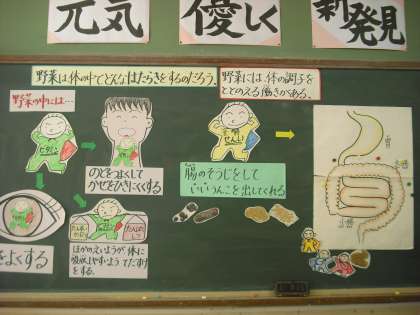 元気
優しく
新発見
野菜は体の中でどんなはたらきをするのだろう。
野菜には、体の調子を
ととのえる働きがある。
野菜の中には…
のどをよくして
かぜをひきにくくする
腸のそうじをして
いいうんこを出してくれる
をよくする
ほかのえいようが体に
吸収しやすいよう てだすけ
をする。
胃
小腸
大腸